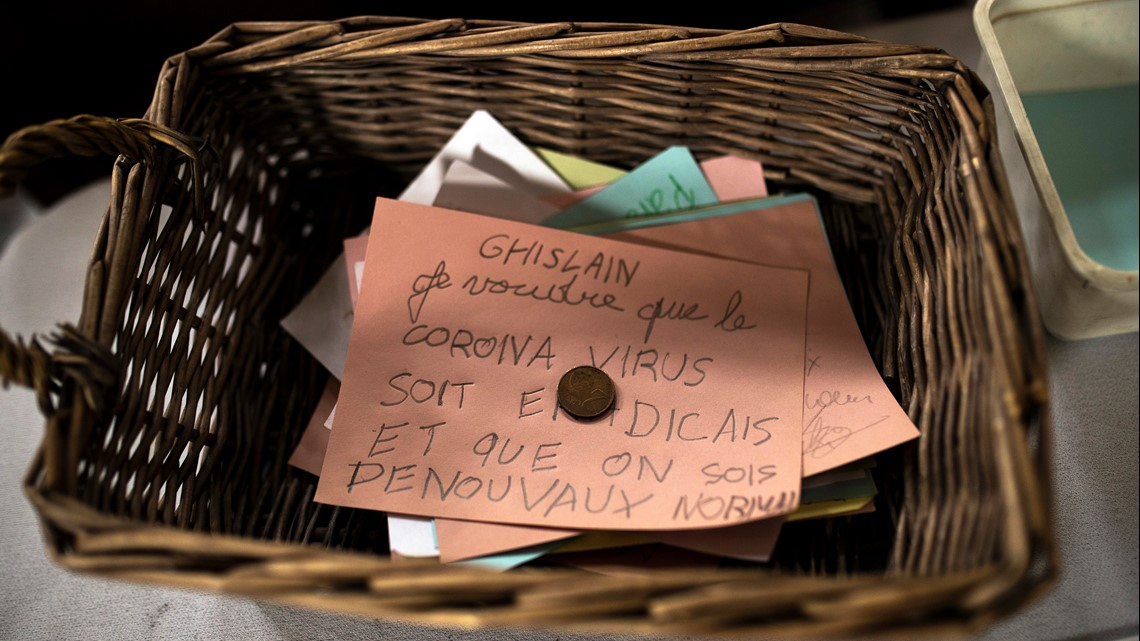 GHISLAIN
Je voudre que le
CORONA VIRUS
SOIT DICAIS
ET QUE ON SOIS
DENOUVAUX NORMAL